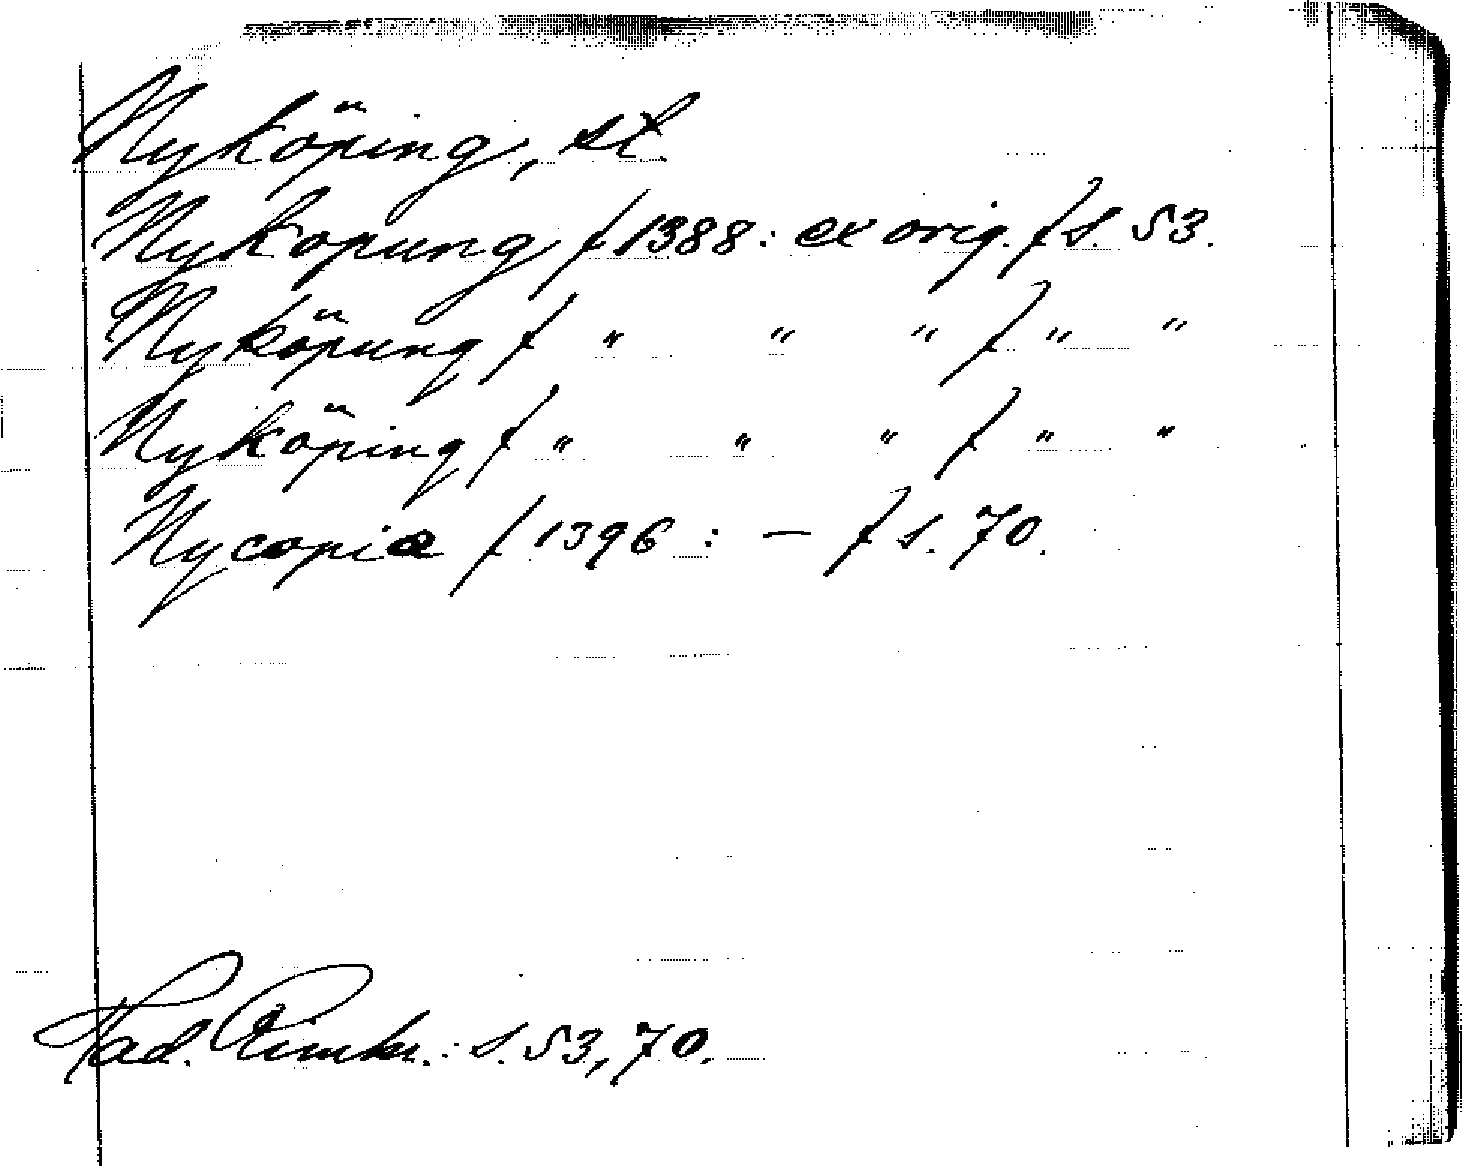 Nyköping, st.
Nykopung f 1388: ex orig. f s. 53.
Nyköpung f " " " f " "
Nyköping f " " " f " "
Nycopia f 1396 : — f s. 70.
Pad. : s. 53, 70.